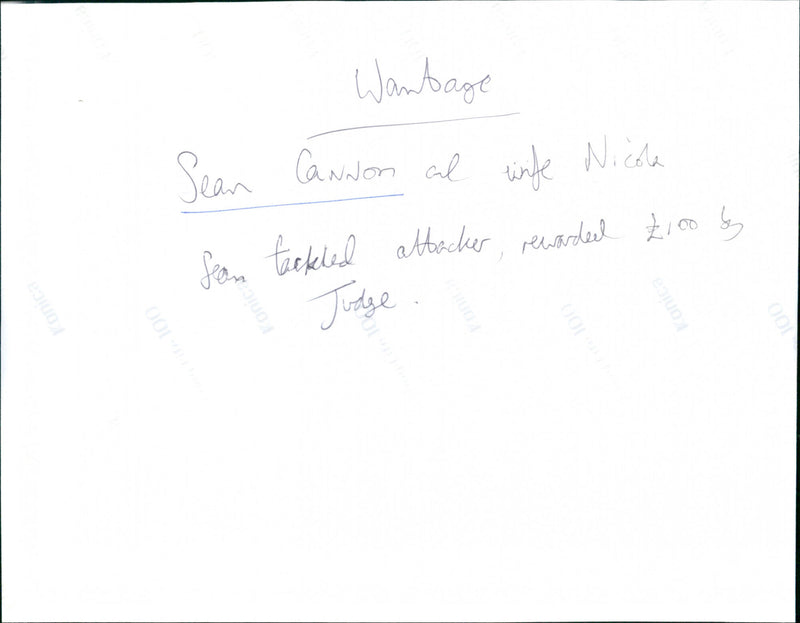 Wantage
Sean CANNON and wife Nicola
Sean tackled attacker, rewarded £100 by
Judge.
Konica Konica Konica Konica
100 100 100 100